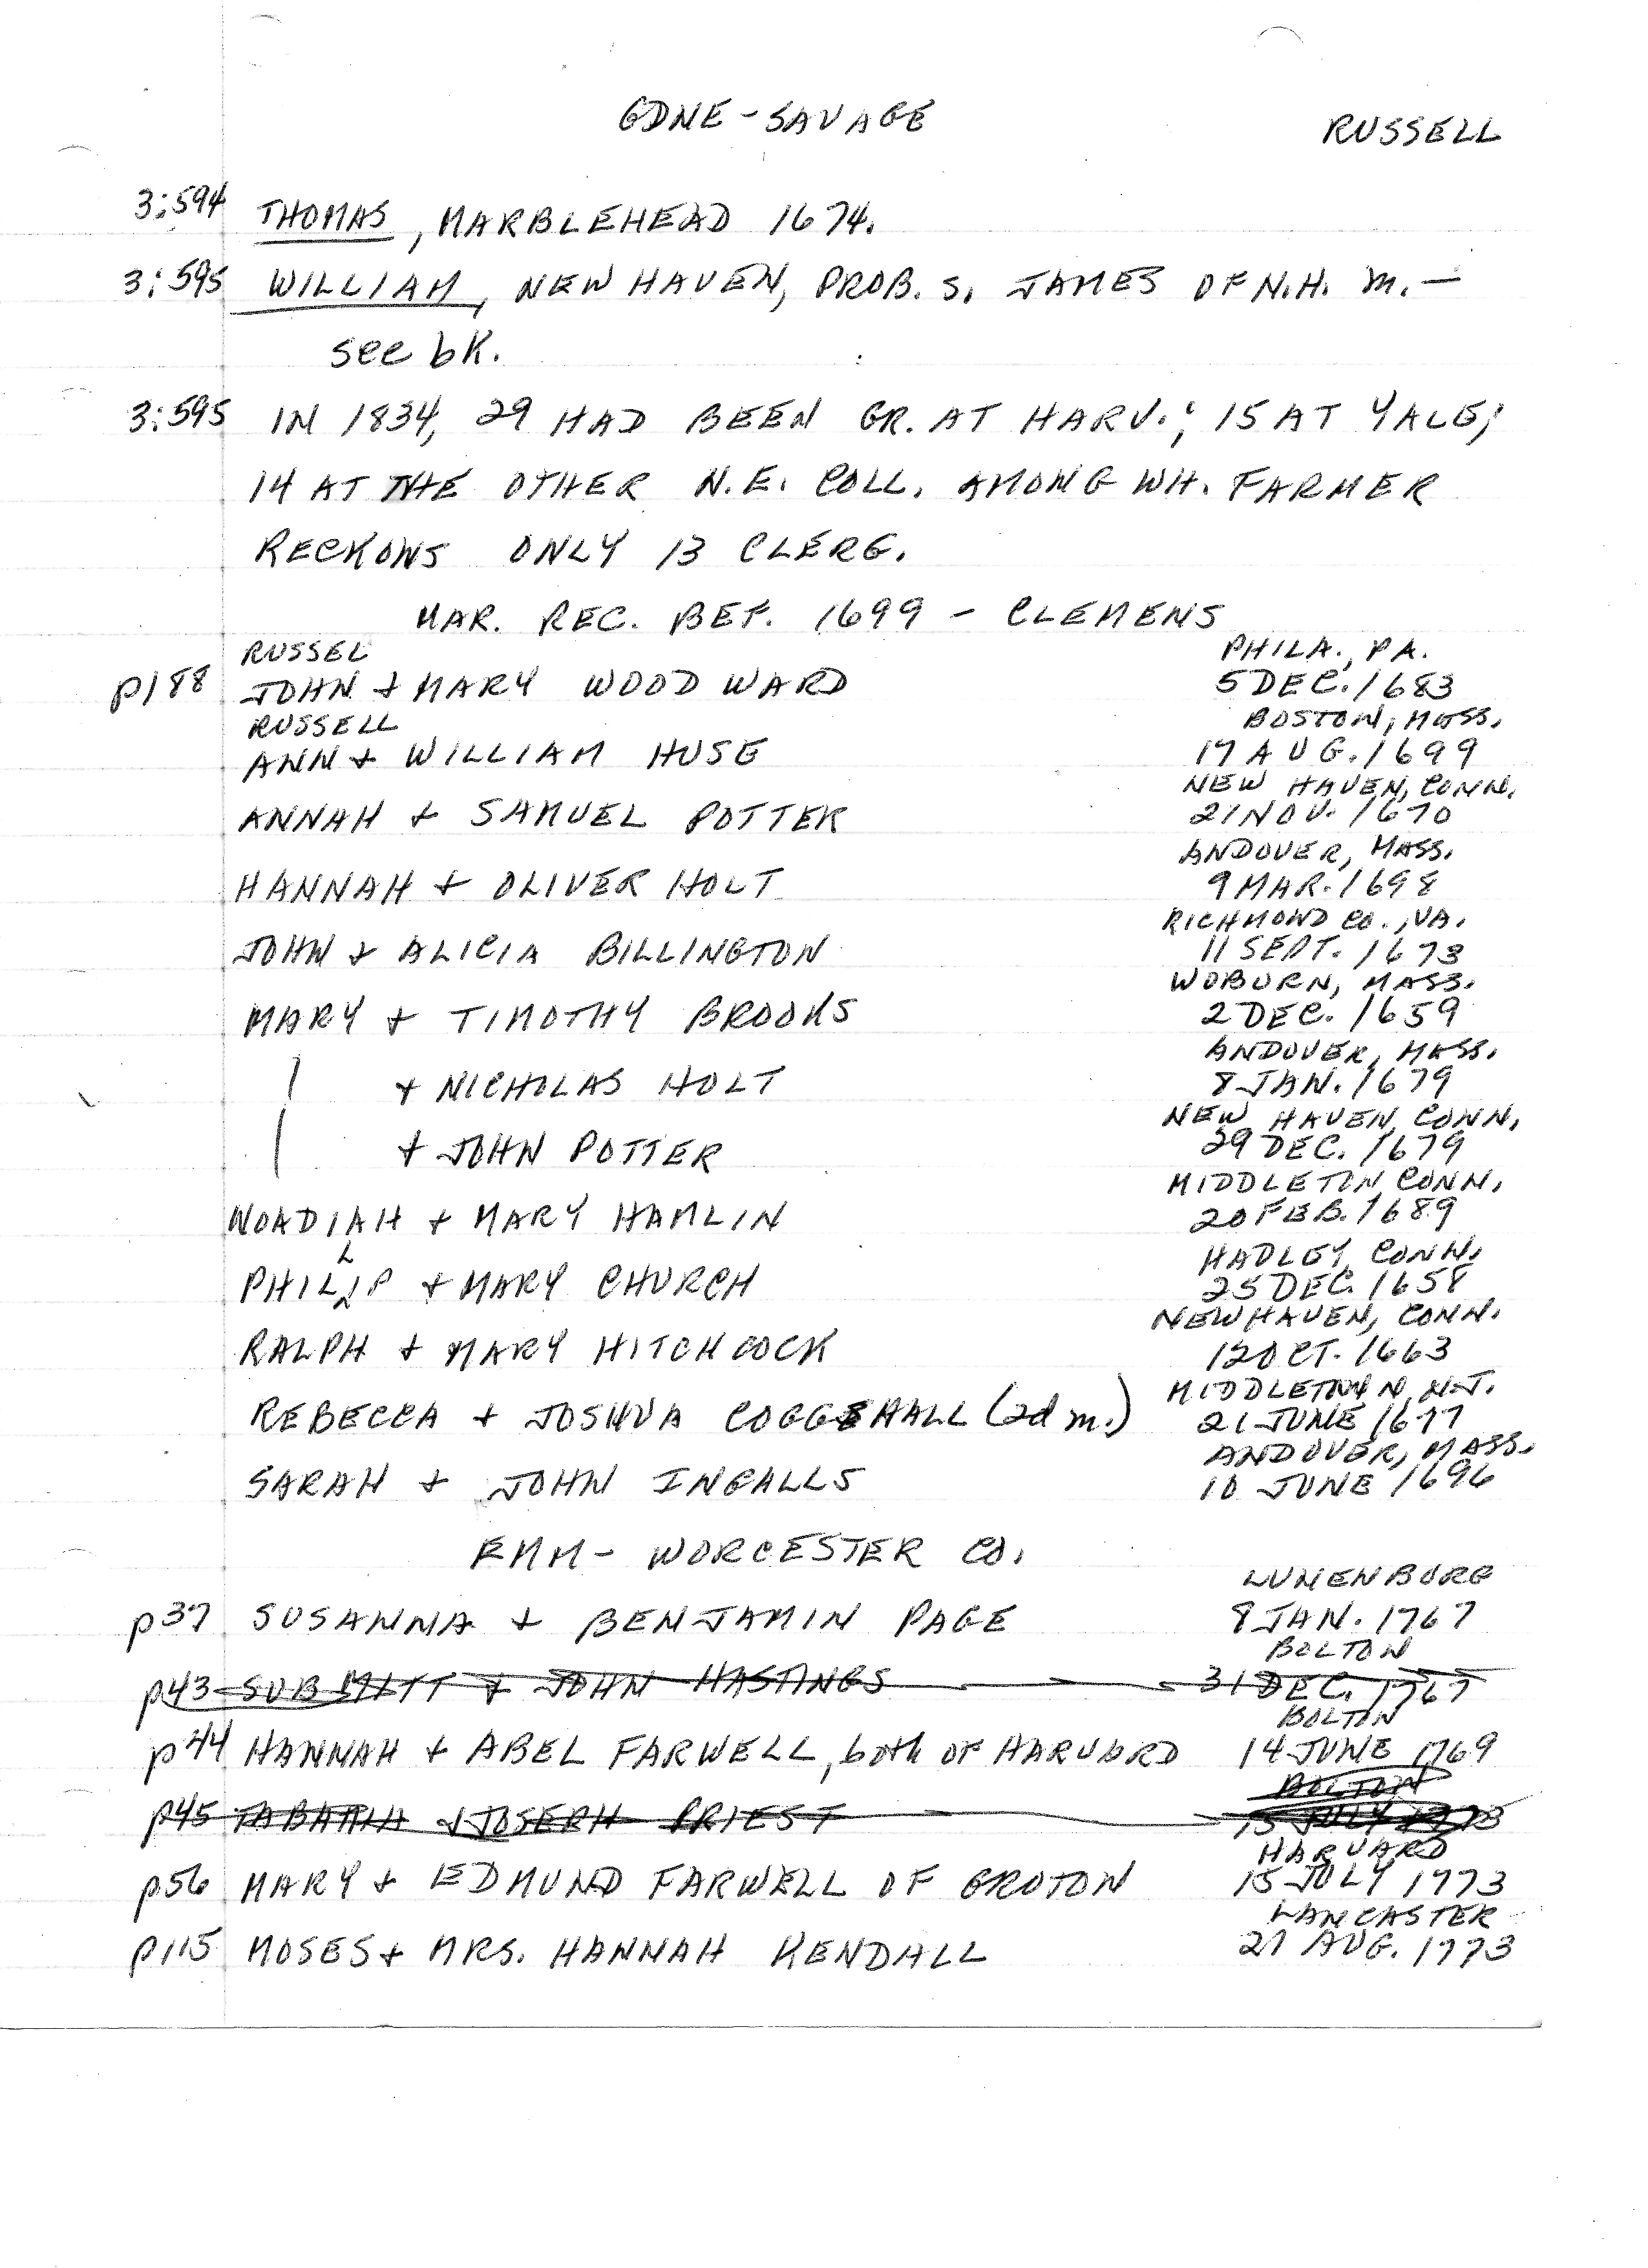 GDNE - SAVAGE
RUSSELL
3:594 THOMAS, MARBLEHEAD 1674.
3:595 WILLIAM, NEW HAVEN, PROB. S. JAMES OF N.H. m. —
see bk.
3:595 IN 1834, 29 HAD BEEN GR. AT HARV.; 15 AT YALE;
14 AT THE OTHER N.E. COLL. AMONG WH. FARMER
RECKONS ONLY 13 CLERG.
MAR. REC. BEF. 1699 - CLEMENS
RUSSEL PHILA., PA.
p188 JOHN + MARY WOODWARD 5 DEC. 1683
RUSSELL BOSTON, MASS.
ANN + WILLIAM HUSE 17 AUG. 1699
NEW HAVEN, CONN.
ANNAH + SAMUEL POTTER 21 NOV. 1670
ANDOVER, MASS.
HANNAH + OLIVER HOLT 9 MAR. 1698
RICHMOND CO., VA.
JOHN + ALICIA BILLINGTON 11 SEPT. 1673
WOBURN, MASS.
MARY + TIMOTHY BROOKS 2 DEC. 1659
ANDOVER, MASS.
+ NICHOLAS HOLT 8 JAN. 1679
NEW HAVEN, CONN.
+ JOHN POTTER 29 DEC. 1679
MIDDLETON CONN.
NOADIAH + MARY HAMLIN 20 FEB. 1689
HADLEY, CONN.
PHILLIP + MARY CHURCH 25 DEC. 1658
NEW HAVEN, CONN.
RALPH + MARY HITCHCOCK 12 OCT. 1663
MIDDLETOWN, N.J.
REBECCA + JOSHUA COGGSHALL (2d m.) 21 JUNE 1677
ANDOVER, MASS.
SARAH + JOHN INGALLS 10 JUNE 1696
EMM - WORCESTER CO.
LUNENBURG
p37 SUSANNA + BENJAMIN PAGE 8 JAN. 1767
BOLTON
p43 SUBMITT + JOHN HASTINGS 31 DEC. 1767
BOLTON
p44 HANNAH + ABEL FARWELL, both OF HARVARD 14 JUNE 1769
BOLTON
p45 TABATHA + JOSEPH PRIEST 15 JULY 1773
HARVARD
p56 MARY + EDMUND FARWELL OF GROTON 15 JULY 1773
LANCASTER
p115 MOSES + MRS. HANNAH KENDALL 27 AUG. 1773